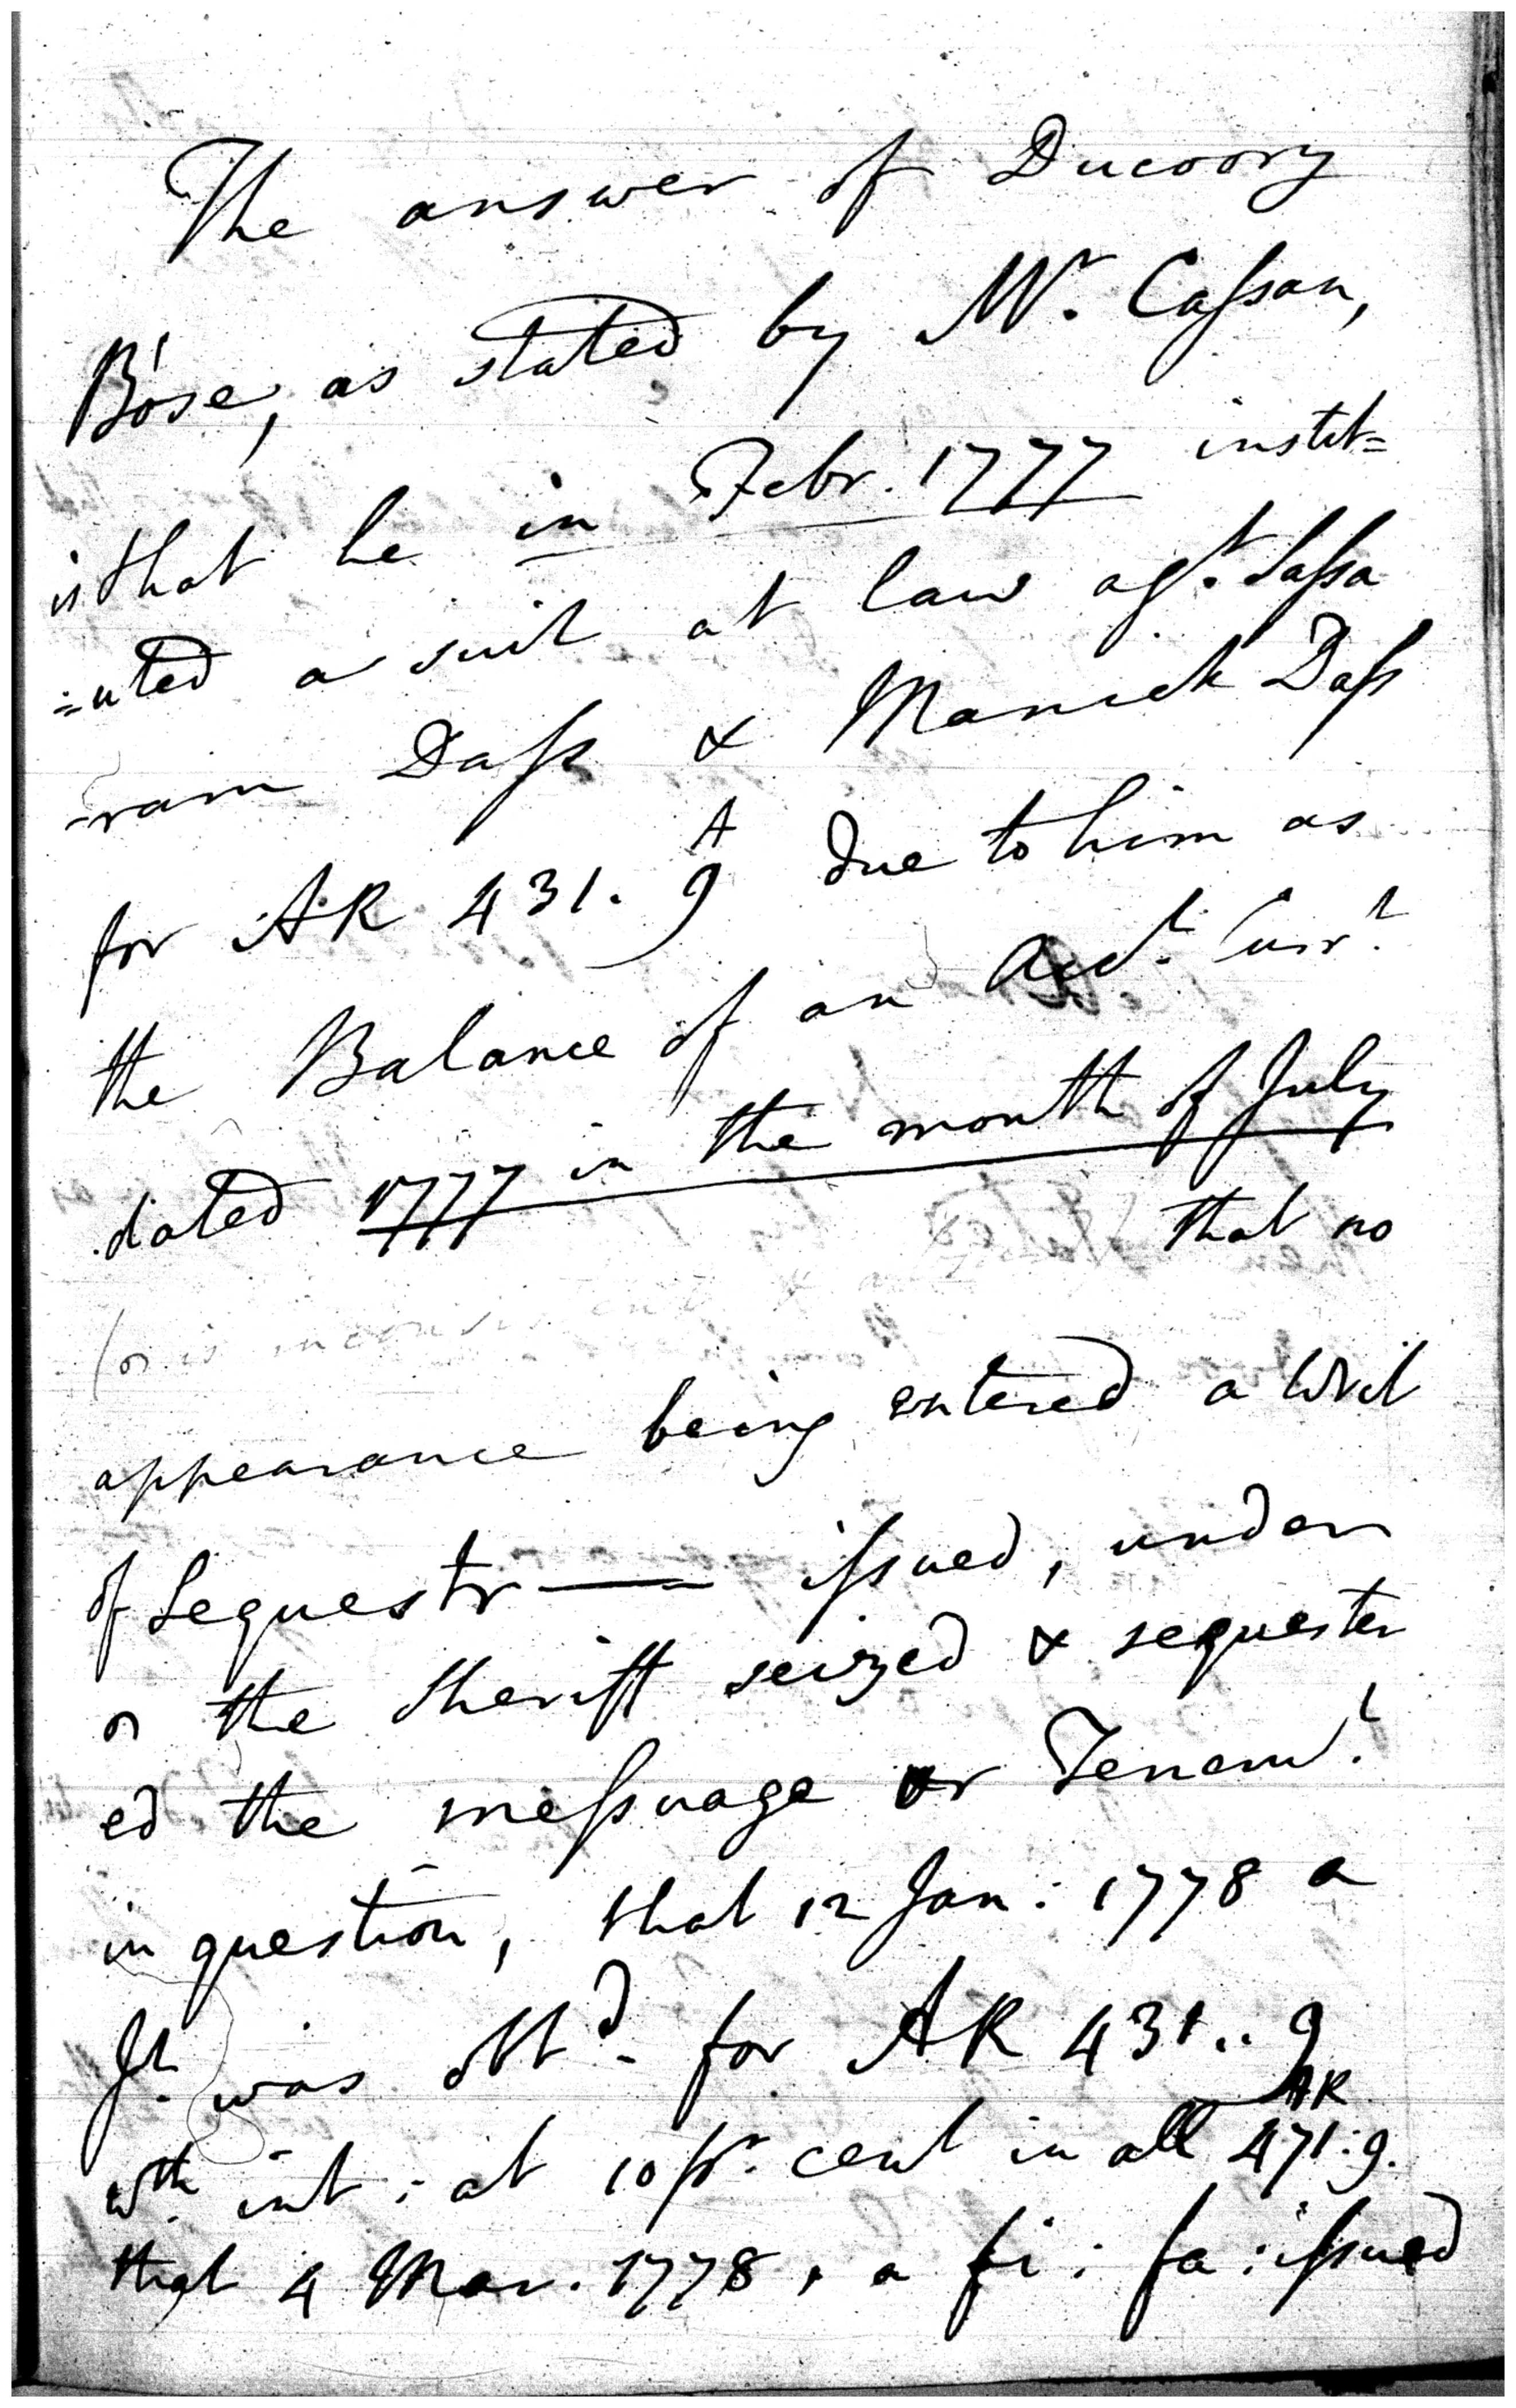 The answer of Ducoory
Bose, as stated by Mr. Caſsan,
is that he in Febr. 1777 instit=
=uted a suit at law agt. Saſsa
-ram Daſs & Manick Daſs
for AR 431. 9 A due to him as
the Balance of an Acct. Curr.t
dated 1777 in the month of July
that no
appearance being entered a Writ
of Sequestr—— iſsued, under
the Sheriff seized & sequester
ed the meſsuage or Tenemt.
in question, that 12 Jan: 1778 a
Jt. was obtd. for AR 431..9
wth. int: at 10 pr. cent in all AR 471:9.
that 4 Mar. 1778, a fi: fa: iſsued